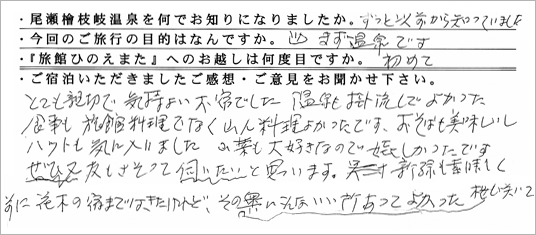 ・尾瀬檜枝岐温泉を何でお知りになりましたか。ずっと以前から知っていました
・今回のご旅行の目的はなんですか。山 まず温泉です
・『旅館ひのえまた』へのお越しは何度目ですか。初めて
・ご宿泊いただきましたご感想・ご意見をお聞かせ下さい。
とても親切で気持よいお宿でした 温泉も掛流しでよかった
食事も旅館料理でなく山人料理よかったです、おそばも美味しい
ハットも気に入りました 山菜も大好きなので嬉しかったです
ぜひ又友しさそって伺いたいと思います。 新緑も素晴しく
前に 花木の宿まではきたけれど、その奥にこんないい所あってよかった 桜も咲いて